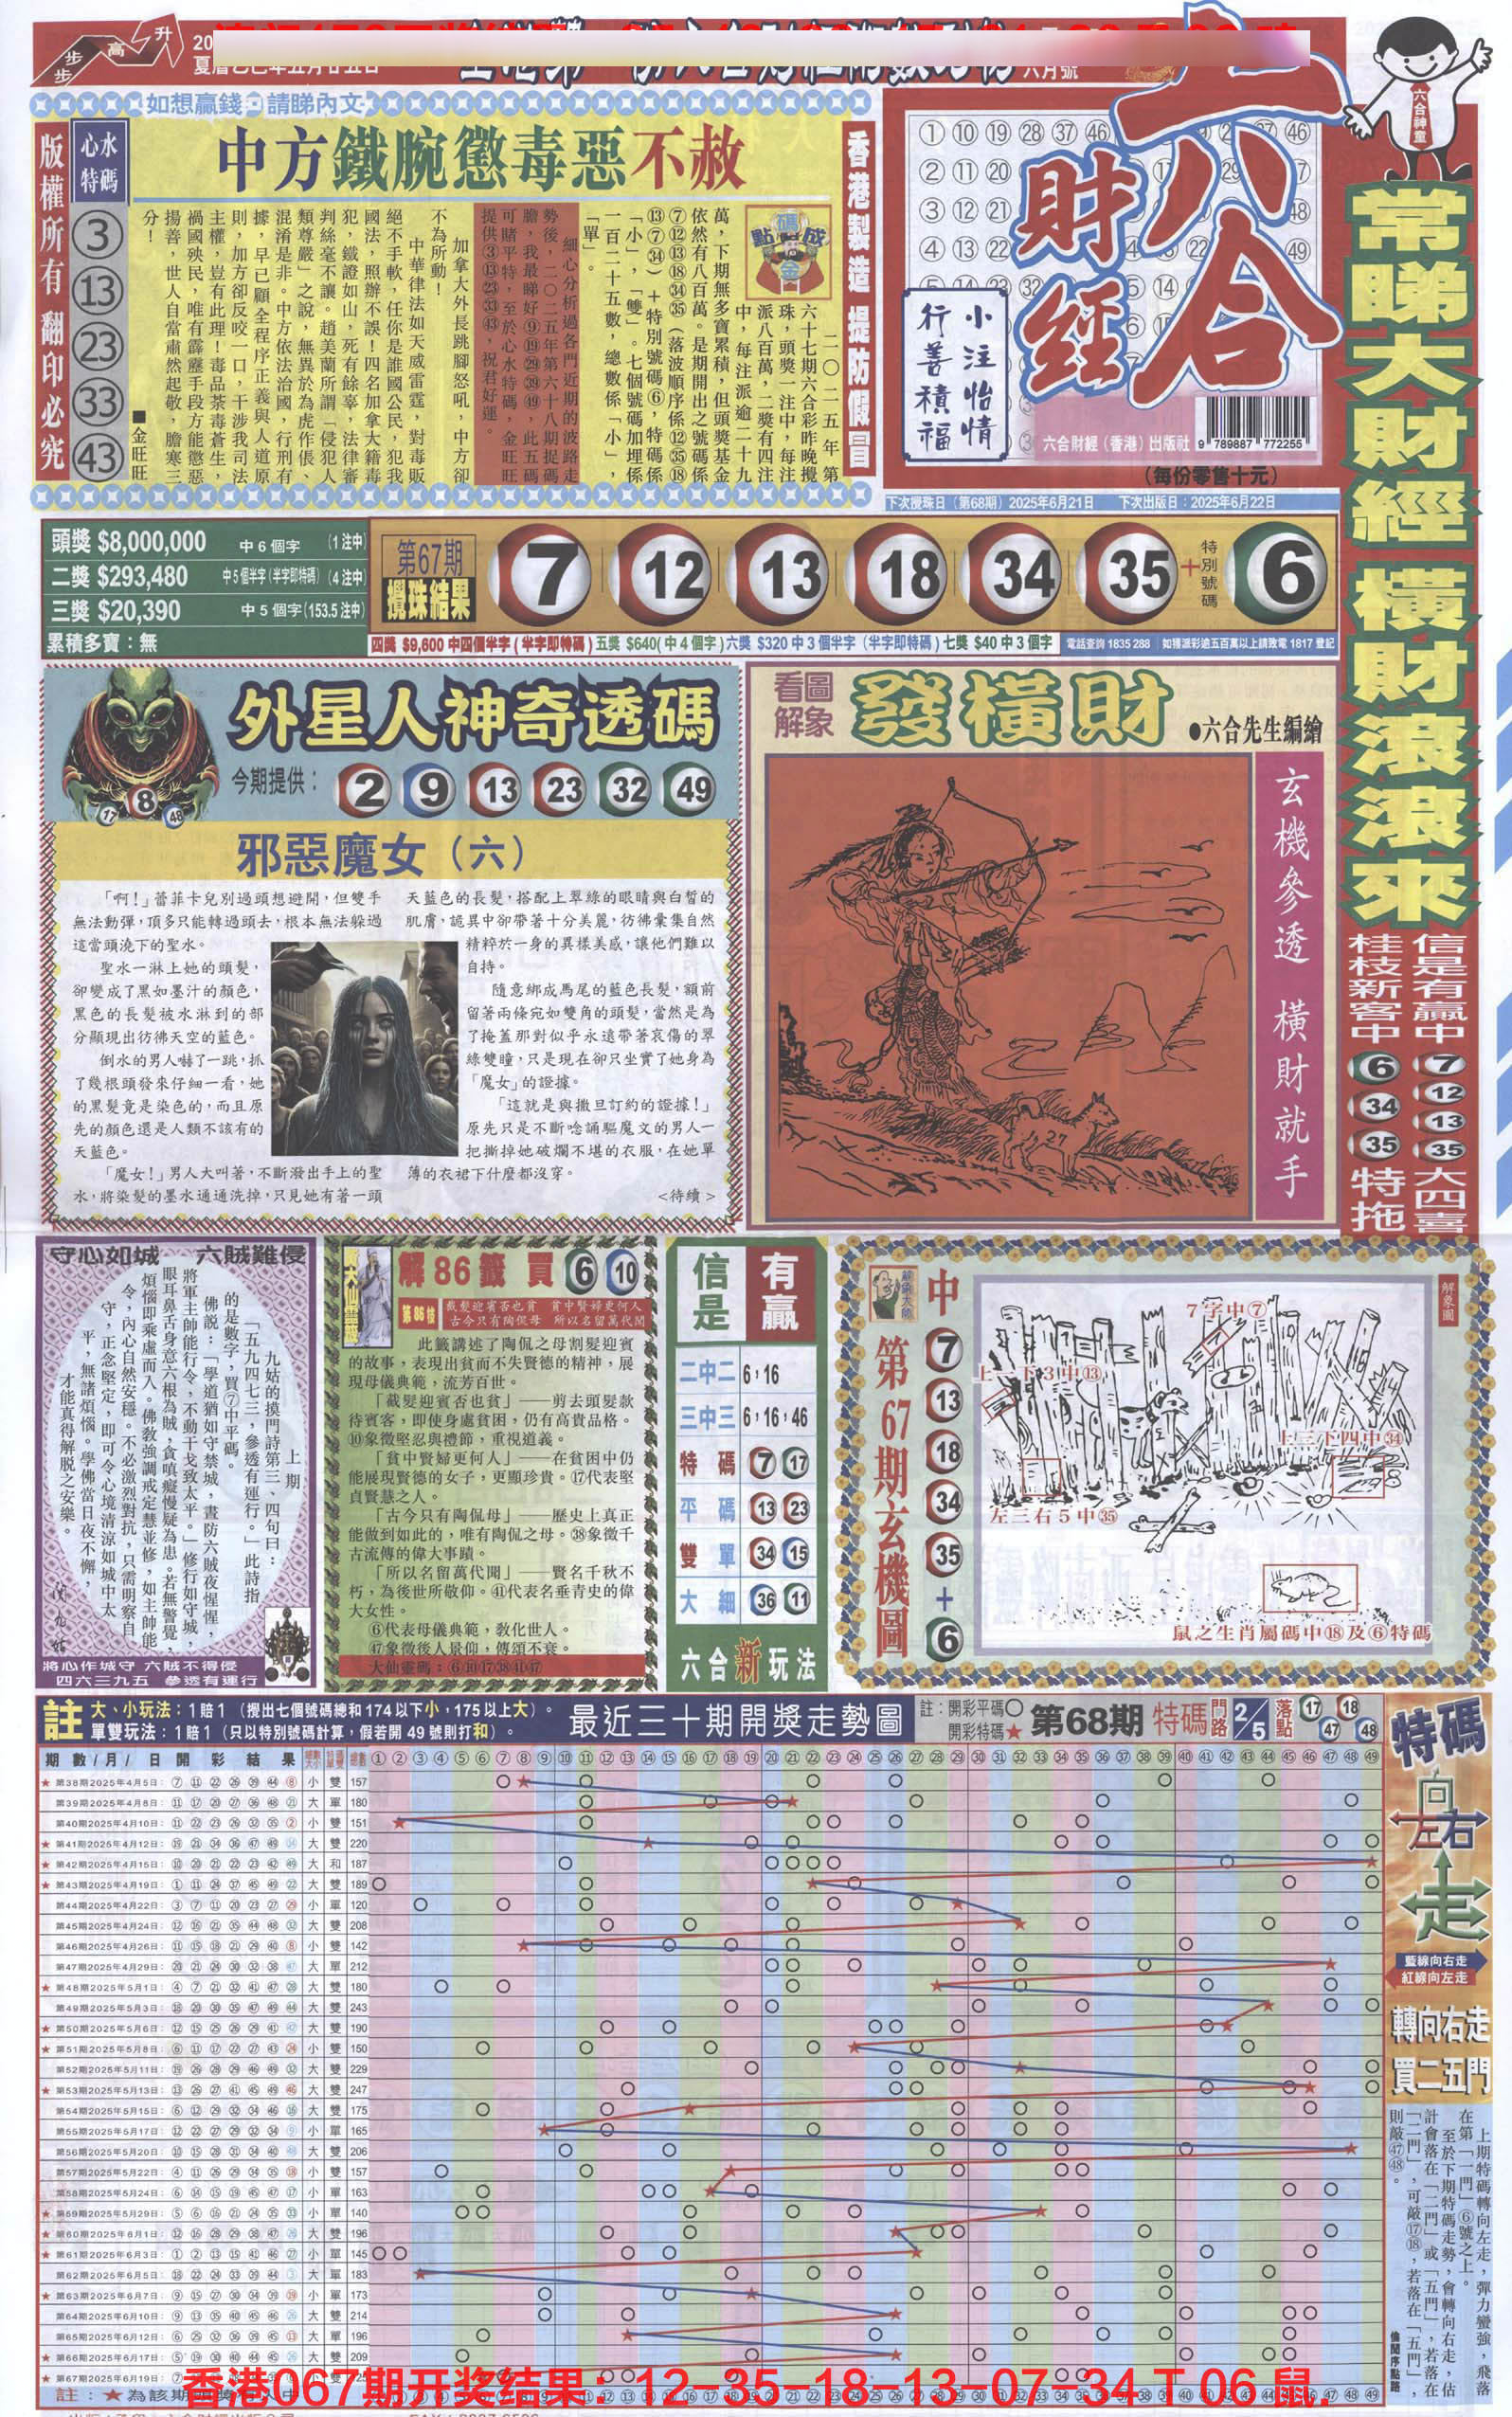 步步高升
夏曆乙巳年五月廿五日
六月號
如想贏錢 請睇內文
版權所有 翻印必究
心水特碼
3
13
23
33
43
中方鐵腕懲毒惡不赦
香港製造 提防假冒
二〇二五年第
六十七期六合彩昨晚攪
珠，頭獎一注中，每注
派八百萬，二獎有四注
中，每注派逾二十九
萬，下期無多寶累積，但頭獎基金
依然有八百萬。是期開出之號碼係
⑦⑫⑬⑱㉞㉟（落波順序係⑫㉟⑱
⑬⑦㉞）＋特別號碼⑥，特碼係
「小」，「雙」。七個號碼加埋係
一百二十五數，總數係「小」，
「單」。
細心分析過各門近期的波路走
勢後，二〇二五年第六十八期捉碼
膽，我最睇好⑨⑲㉙㊴㊾，此五碼
可賭平特，至於心水特碼，金旺旺
提供③⑬㉓㉝㊸，祝君好運。
加拿大外長跳腳怒吼，中方卻
不為所動！
中華律法如天威雷霆，對毒販
絕不手軟，任你是誰國公民，犯我
國法，照辦不誤！四名加拿大籍毒
犯，鐵證如山，死有餘辜，法律審
判絲毫不讓。趙美蘭所謂「侵犯人
類尊嚴」之說，無異於為虎作倀、
混淆是非。中方依法治國，行刑有
據，早已顧全程序正義與人道原
則，加方卻反咬一口，干涉我司法
主權，豈有此理！毒品荼毒蒼生，
禍國殃民，唯有霹靂手段方能懲惡
揚善，世人自當肅然起敬，膽寒三
分！
■金旺旺
六合財經
六合神童
小注怡情
行善積福
六合財經（香港）出版社
9 789887 772255
（每份零售十元）
下次攪珠日（第68期）2025年6月21日 下次出版日：2025年6月22日
常睇大財經 橫財滾滾來
信是有贏中 7 12 13 35 大四喜
桂枝新客中 6 34 35 特拖
頭獎 $8,000,000 中6個字 （1注中）
二獎 $293,480 中5個半字（半字即特碼）（4注中）
三獎 $20,390 中5個字（153.5注中）
累積多寶：無
第67期
攪珠結果
7 12 13 18 34 35 + 特別號碼 6
四獎 $9,600 中四個半字（半字即特碼）五獎 $640（中4個字）六獎 $320 中3個半字（半字即特碼）七獎 $40 中3個字 電話查詢 1835 288 如獲派彩逾五百萬以上請致電 1817 登記
外星人神奇透碼
17 8 48
今期提供： 2 9 13 23 32 49
邪惡魔女（六）
「啊！」蕾菲卡兒別過頭想避開，但雙手
無法動彈，頂多只能轉過頭去，根本無法躲過
這當頭澆下的聖水。
聖水一淋上她的頭髮，
卻變成了黑如墨汁的顏色，
黑色的長髮被水淋到的部
分顯現出彷彿天空的藍色。
倒水的男人嚇了一跳，抓
了幾根頭發來仔細一看，她
的黑髮竟是染色的，而且原
先的顏色還是人類不該有的
天藍色。
「魔女！」男人大叫著，不斷潑出手上的聖
水，將染髮的墨水通通洗掉，只見她有著一頭
天藍色的長髮，搭配上翠綠的眼睛與白皙的
肌膚，詭異中卻帶著十分美麗，彷彿彙集自然
精粹於一身的異樣美感，讓他們難以
自持。
隨意綁成馬尾的藍色長髮，額前
留著兩條宛如雙角的頭髮，當然是為
了掩蓋那對似乎永遠帶著哀傷的翠
綠雙瞳，只是現在卻只坐實了她身為
「魔女」的證據。
「這就是與撒旦訂約的證據！」
原先只是不斷唸誦驅魔文的男人一
把撕掉她破爛不堪的衣服，在她單
薄的衣裙下什麼都沒穿。
<待續>
看圖解象
發橫財
●六合先生編繪
玄機參透 橫財就手
27
守心如城 六賊難侵
上期
九姑的摸門詩第三、四句曰：
「五九四七三，參透有運行。」此詩指
的是數字，買⑦中平碼。
佛説：「學道猶如守禁城，晝防六賊夜惺惺，
將軍主帥能行令，不動干戈致太平。」修行如守城，
眼耳鼻舌身意六根為賊，貪嗔癡慢疑為患。若無警覺，
煩惱即乘虛而入。佛教強調戒定慧並修，如主帥能
令，內心自然安穩。不必激烈對抗，只需明察自
守，正念堅定，即可令心境清涼如城中太
平，無諸煩惱。學佛當日夜不懈，
才能真得解脫之安樂。
將心作城守 六賊不得侵
四六三九五 參透有運行
解86籤買 6 10
第86枝
截髮迎賓否也貧 貧中賢婦更何人
古今只有陶侃母 所以名留萬代聞
此籤講述了陶侃之母割髮迎賓
的故事，表現出貧而不失賢德的精神，展
現母儀典範，流芳百世。
「截髮迎賓否也貧」——剪去頭髮款
待賓客，即使身處貧困，仍有高貴品格。
⑩象徵堅忍與禮節，重視道義。
「貧中賢婦更何人」——在貧困中仍
能展現賢德的女子，更顯珍貴。⑰代表堅
貞賢慧之人。
「古今只有陶侃母」——歷史上真正
能做到如此的，唯有陶侃之母。㊳象徵千
古流傳的偉大事蹟。
「所以名留萬代聞」——賢名千秋不
朽，為後世所敬仰。㊶代表名垂青史的偉
大女性。
⑥代表母儀典範，教化世人。
㊼象徵後人景仰，傳頌不衰。
大仙靈碼：⑥⑩⑰㊳㊶㊼
信是有贏
二中二 6，16
三中三 6，16，46
特碼 7 17
平碼 13 23
雙單 34 15
大細 36 11
六合新玩法
中 7 13 18 34 35 + 6
第67期玄機圖
解象圖
7字中⑦
上一下3中⑬
上三下四中㉞
左三右5中㉟
鼠之生肖屬碼中⑱及⑥特碼
註 大、小玩法：1賠1（攪出七個號碼總和174以下小，175以上大）。
單雙玩法：1賠1（只以特別號碼計算，假若開49號則打和）。
最近三十期開獎走勢圖
註：開彩平碼○
開彩特碼★
第68期 特碼門路 2/5 落點 17 18 47 48
期數/月/日 開彩結果
★第38期2025年4月5日：⑦⑪㉒㉖㊴㊹⑧ 小 雙 157
第39期2025年4月8日：⑪⑰⑳㉗㊱㊽㉑ 大 單 180
第40期2025年4月10日：⑪㉒㉓㉖㉜㉟② 小 雙 151
★第41期2025年4月12日：⑲㉑㉞㊱㊼㊾⑭ 大 雙 220
★第42期2025年4月15日：⑩⑳㉑㉒㉓㊷㊾ 大 和 187
★第43期2025年4月19日：①⑪㉔㊲㊺㊾㉒ 大 雙 189
第44期2025年4月22日：③⑦⑪⑳㉓㉗㉙ 小 單 120
第45期2025年4月24日：⑫⑯㉑㉟㊹㊽㉜ 大 雙 208
★第46期2025年4月26日：⑪⑮⑱㉑㉙㊵⑧ 小 雙 142
第47期2025年4月29日：⑳㉑㉔㉚㉜㊳㊼ 大 單 212
★第48期2025年5月1日：④⑦㉑㉜㊶㊼㉘ 大 雙 180
第49期2025年5月3日：⑱⑳㉚㉟㊼㊾㊹ 大 雙 243
★第50期2025年5月6日：⑫⑮㉕㉖㉙㊶㊷ 大 雙 190
★第51期2025年5月8日：⑥⑪⑰㉒㉗㊸㉔ 小 雙 150
第52期2025年5月11日：⑲㉖㉘㉙㊻㊾㉜ 大 雙 229
★第53期2025年5月13日：⑬㉖㉗㊶㊺㊾㊻ 大 雙 247
第54期2025年5月15日：⑥⑫㉙㉜㉞㊻⑯ 大 雙 175
第55期2025年5月17日：⑫㉒㉗㉙㉜㉞⑨ 小 單 165
第56期2025年5月20日：⑩⑮㉘㉛㉞㊵㊽ 大 雙 206
★第57期2025年5月22日：④⑪㉖㉙㉞㉟⑱ 小 雙 157
第58期2025年5月24日：⑥⑭⑮⑲㊺㊼⑰ 小 單 163
★第59期2025年5月29日：⑤⑥⑯㉑㉔㉟㉝ 小 單 140
★第60期2025年6月1日：⑫⑯㉘㉙㊳㊼㉖ 大 雙 196
★第61期2025年6月3日：①②⑬⑮㊶㊻㉗ 小 單 145
第62期2025年6月5日：⑱㉒㉔㉝㊴㊹③ 大 單 183
★第63期2025年6月7日：⑨⑮㉗㉚㉞㊴⑲ 小 單 173
第64期2025年6月10日：⑨⑬㉟㊵㊺㊻㉖ 大 雙 214
第65期2025年6月12日：⑥㉕㉜㊱㊴㊺⑬ 大 單 196
★第66期2025年6月17日：⑤⑲㉚㊵㊹㊺㉖ 大 雙 209
★第67期2025年6月19日：
特碼向左右走
藍線向右走
紅線向左走
轉向右走
買二五門
上期特碼轉向左走，彈力蠻強，飛落
在第「一門」⑥號之上。
至於下期特碼走勢，會轉向右走，估
計會落在「二門」或「五門」，若落在
「二門」，可敲⑰⑱，若落在「五門」，
則敲㊼㊽。
香港067期开奖结果：12-35-18-13-07-34 T 06 鼠.